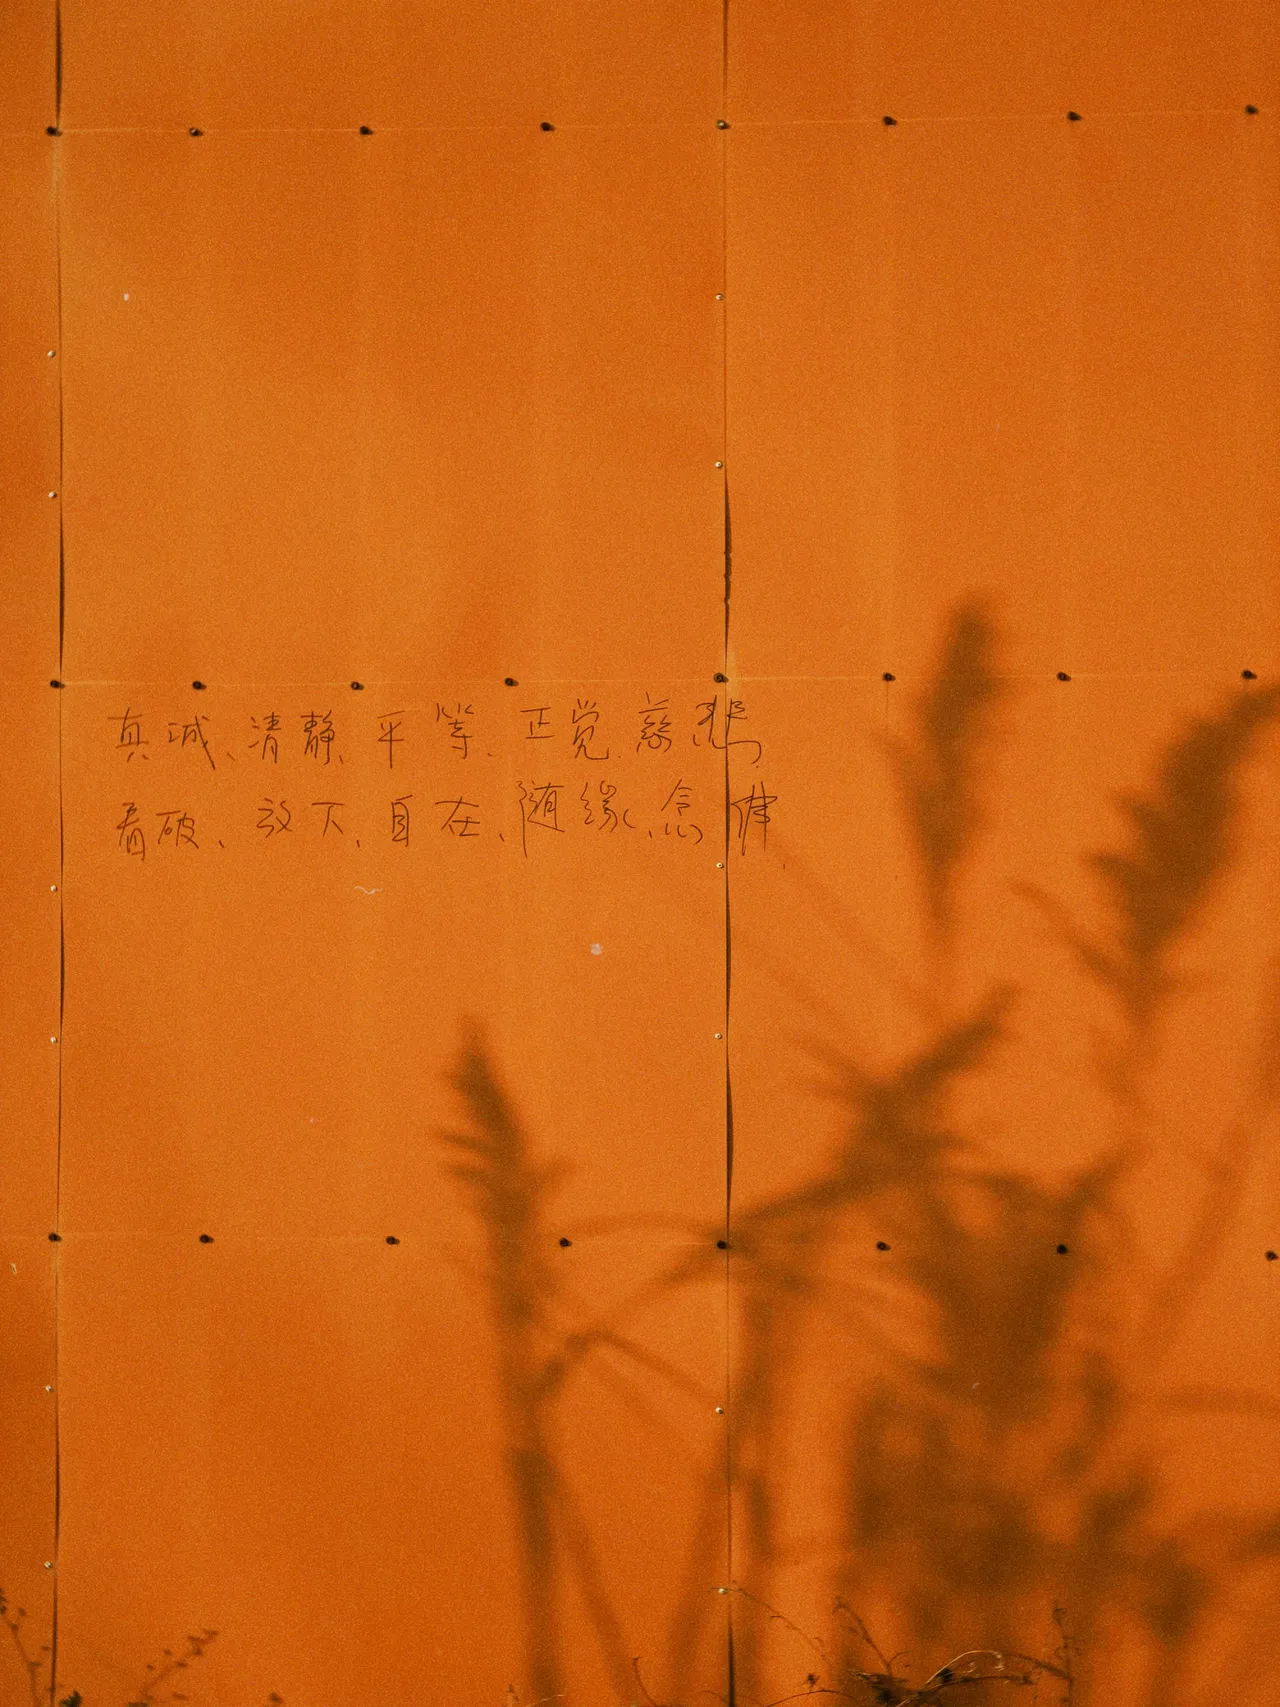 真诚、清静、平等、正觉、慈悲、
看破、放下、自在、随缘、念佛、